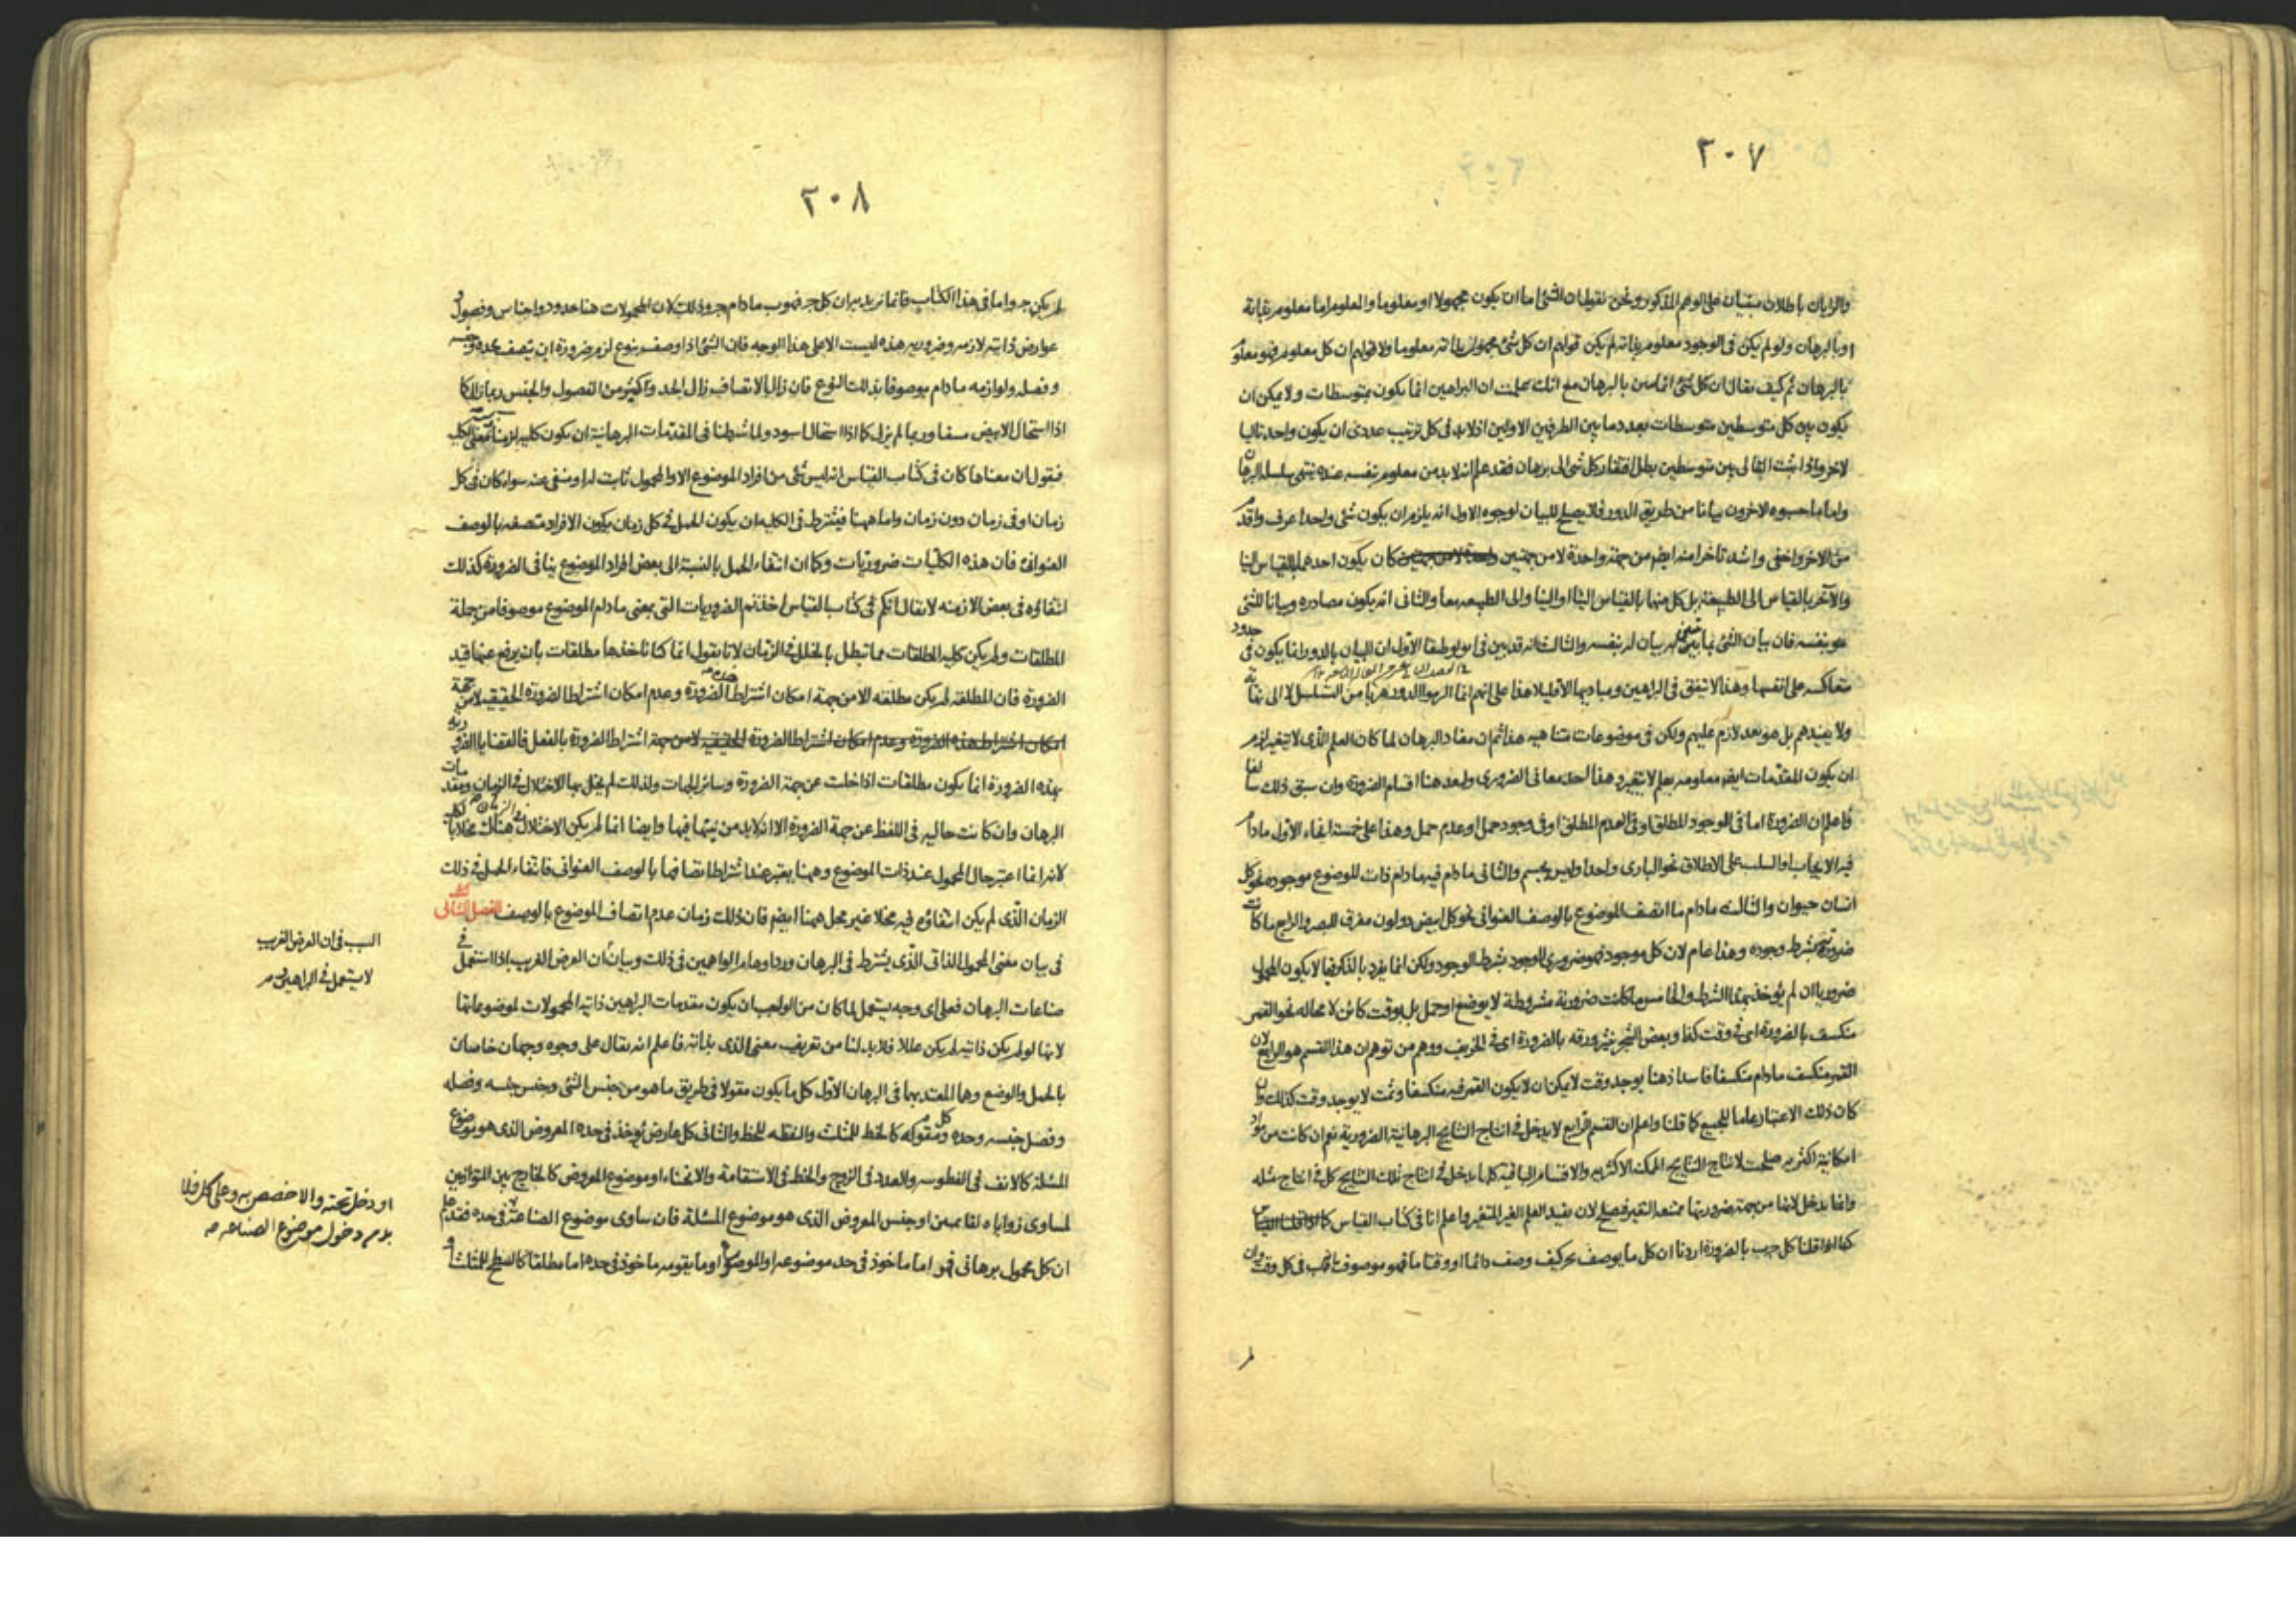 ٢٠٧
والرايان باطلان مبنيان على الوهم المذكور ونحن نقول ان الشئ اما ان يكون مجهولا او معلوما والمعلوم اما معلوم بذاته
او بالبرهان ولو لم يكن فى الوجود معلوم بذاته لم يكن قولهم ان كل شئ مجهول بذاته معلوما ولا قولهم ان كل معلوم فهو معلوم
بالبرهان ثم كيف يقال ان كل شئ انما يبين بالبرهان مع انك علمت ان البراهين انما يكون بمتوسطات ولا يمكن ان
يكون بين كل متوسطين متوسطات بعدد ما بين الطرفين الاولين اذ لابد فى كل ترتيب عددى ان يكون واحد تاليا
لاخر واذا ثبت التالى بين متوسطين بطل افتقار كل شئ الى برهان فقد علم انه لابد من معلوم بنفسه عنده ينتهى سلسله البرهان
واما ما حسبوه الاخرون بيانا من طريق الدور فلا يصلح للبيان لوجوه الاول انه يلزم ان يكون شئ واحد اعرف واقدم
من الاخر واخفى واشد تاخرا منه ايضا من جهة واحدة لا من جهتين كان يكون احدهما بالقياس الينا
والآخر بالقياس الى الطبيعة بل كل منهما بالقياس الينا او الينا والى الطبيعه معا والثانى انه يكون مصادره وبيانا للشئ
هو بنفسه فان بيان الشئ بما يبين به بيان له بنفسه والثالث انه قد بين فى انولوطيقا الاول ان البيان بالدور انما يكون فى حدود
متعاكسه على انفسها وهذا لا يتفق فى البراهين ومباديها الا قليلا هذا على انهم انما الدور هربا من التسلسل لا الى نهاية
ولا يفيدهم بل هو بعد لازم عليهم ولكن فى موضوعات متناهيه هذا ثم ان مفاد البرهان لما كان العلم الذى لا يتغير لزم
ان يكون المقدمات ايضا معلومه بعلم لا يتغير وهذا احد معانى الضرورى ولنعد هنا اقسام الضرورة وان سبق ذلك سالفا
فاعلم ان الضرورة اما فى الوجود المطلق او فى العدم المطلق او فى وجود حمل او عدم حمل وهذا على خمسة انحاء الاول مادام
فيه الايجاب او السلب على الاطلاق نحو البارى واحد وليس بجسم والثانى مادام فيه مادام ذات الموضوع موجوده نحو كل
انسان حيوان والثالث مادام ما اتصف الموضوع بالوصف العنوانى نحو كل ابيض ذو لون مفرق للبصر والرابع ما كانت
ضرورته بشرط وجوده وهذا عام لان كل موجود فهو ضرورى الوجود بشرط الوجود ولكن انما يفرد بالذكر فيما لا يكون المحمول
ضروريا ان لم يؤخذ بهذا الشرط والخامس ما كانت ضرورية مشروطة لا بوضع او حمل بل بوقت كائن لا محاله نحو القمر
منكسف بالضرورة اى فى وقت كذا وبعض الشجر ينثر ورقه بالضرورة اى فى الخريف ووهم من توهم ان هذا القسم هو الرابع لان
القمر منكسف مادام منكسفا فاسد اذ هنا يوجد وقت لا يمكن ان لا يكون القمر فيه منكسفا وثمت لا يوجد وقت كذلك وان
كان ذلك الاعتبار عاما للجميع كما قلنا واعلم ان القسم الرابع لا يدخل فى انتاج النتايج البرهانية الضرورية نعم ان كانت من مواد
امكانية اكثريه صلحت لانتاج النتايج الممكنه الاكثريه والاقسام الباقيه كلها يدخل فى انتاج تلك النتايج كل فى انتاج مثله
وانما يدخل لانها من جهة ضروريتها ممتنعه التغير فصلح لان يفيد العلم الغير المتغير واعلم انا فى كتاب القياس
كنا اذا قلنا كل ج ب بالضرورة اردنا ان كل ما يوصف بج كيف وصف دائما او وقتا ما فهو موصوف بانه ب فى كل وقت وان
٢٠٨
لم يكن ج واما فى هذا الكتاب فانما نريد به ان كل ج فهو ب مادام ج وذلك لان المحمولات هنا حدود واجناس وفصول و
عوارض ذاتيه لازمه وضروريه هذه ليست الا على هذا الوجه فان الشئ اذا وصف بنوع لزم ضرورة ان يتصف بحده وجنسه
وفصله ولوازمه مادام موصوفا بذلك النوع فان زال الاتصاف زال الحد واكثر من الفصول والجنس ربما زال كما
اذا استحال الابيض مشفا وربما لم يزل كما اذا استحال اسود ولما شرطنا فى المقدمات البرهانية ان يكون كليه لزمنا معنى الكليه
فنقول ان معناها كان فى كتاب القياس انه ليس شئ من افراد الموضوع الا والمحمول ثابت له او منفى عنه سواء كان فى كل
زمان او فى زمان دون زمان واما ههنا فيشترط فى الكليه ان يكون الحمل فى كل زمان يكون الافراد متصفه بالوصف
العنوانى فان هذه الكليات ضروريات وكما ان انتفاء الحمل بالنسبة الى بعض افراد الموضوع ينافى الضرورة كذلك
انتفاؤه فى بعض الازمنه لا يقال انكم فى كتاب القياس اخذتم الضروريات التى بمعنى مادام الموضوع موصوفا من جملة
المطلقات ولم يكن كليه المطلقات مما تبطل بالخلل فى الزمان لانا نقول انما كنا ناخذها مطلقات بان يرفع عنها قيد
الضرورة فان المطلقة لم يكن مطلقه الا من جهة امكان اشتراط هذه الضرورة وعدم امكان اشتراط الضرورة الحقيقيه لا من جهة
امكان اشتراط هذه الضرورة وعدم امكان اشتراط الضرورة الحقيقيه لا من جهة اشتراط الضرورة بالفعل فالقضايا الضرورية
بهذه الضرورة انما يكون مطلقات اذا خلت عن جهة الضرورة وسائر الجهات ولذلك لم يخل بها الاختلال فى الزمان ومقدمات
البرهان وان كانت خاليه فى اللفظ عن جهة الضرورة الا انه لابد من نيتها فيها وايضا انما لم يكن الاختلال فى الزمان هناك مخلا بالكليه
لانه انما اعتبر حال المحمول عند ذات الموضوع وههنا يعتبر عند اشتراط اتصافها بالوصف العنوانى فانتفاء الحمل فى ذلك
الزمان الذى لم يكن انتفاؤه فيه مخلا غير مخل ههنا ايضا فان ذلك زمان عدم اتصاف الموضوع بالوصف الفصل الثانى
فى بيان معنى المحمول الذاتى الذى يشترط فى البرهان ورد اوهام الواهمين فى ذلك وبيان ان العرض الغريب اذا استعمل فى
صناعات البرهان فعلى اى وجه يستعمل لما كان من الواجب ان يكون مقدمات البراهين ذاتيه المحمولات لموضوعاتها
لانها لو لم يكن ذاتيه لم يكن عللا فلابد لنا من تعريف معنى الذى بذاته فاعلم انه يقال على وجوه وجهان خاصان
بالحمل والوضع وهما المعتد بهما فى البرهان الاول كل ما يكون مقولا فى طريق ما هو من جنس الشئ وجنس جنسه وفصله
وفصل جنسه وحده وكل مقوم له كالخط للمثلث والنقطه للخط والثانى كل عارض يؤخذ فى حده المعروض الذى هو موضوع
المسئلة كالانف فى الفطوسه والعدد فى الزوج والخط فى الاستقامة والانحناء او موضوع المعروض كالخارج بين المتوازيين
لمساوى زواياه لقائمتين او جنس المعروض الذى هو موضوع المسئلة فان ساوى موضوع الصناعة فى حده فقد علم
ان كل محمول برهانى فهو اما ماخوذ فى حد موضوعه او الموضوع او ما يقومه ماخوذ فى حده اما مطلقا كالسطح للمثلث او
السبب فى ان العرض الغريب
لا يستعمل فى البراهين
او دخل تحته والا خصص به وعلى كل فلا
بد من دخول موضوع الصناعه